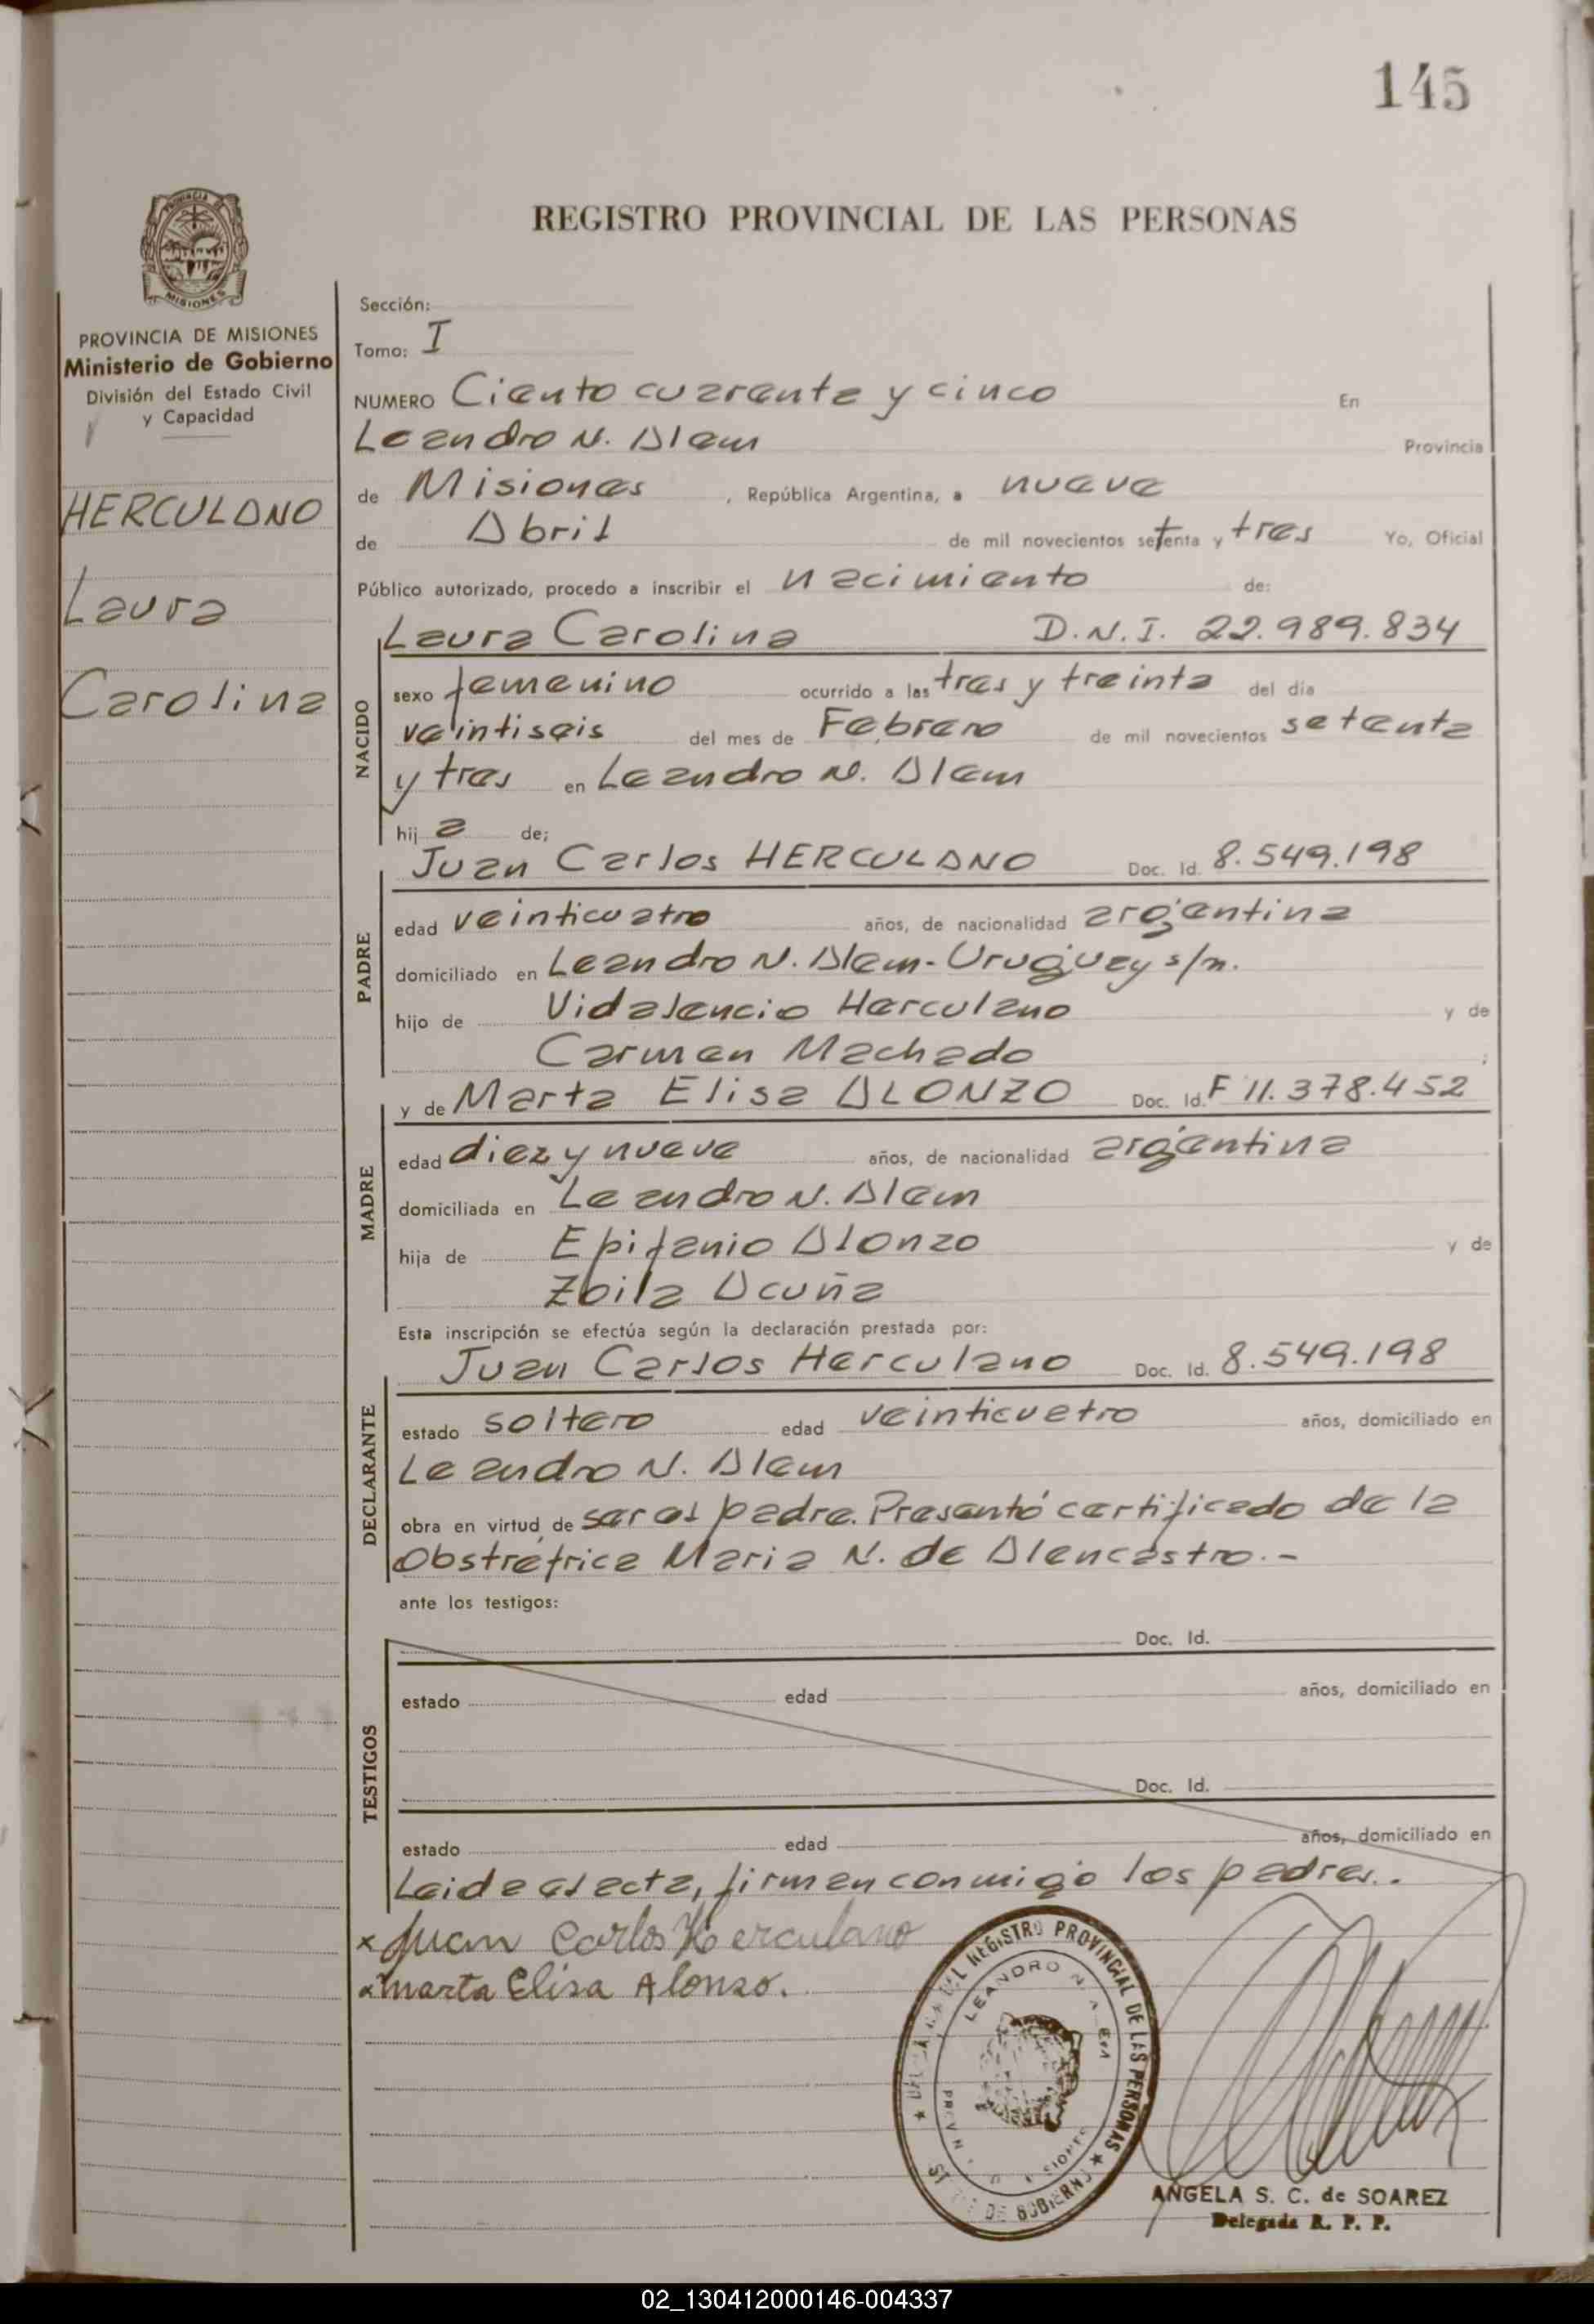 145
PROVINCIA DE
MISIONES
REGISTRO PROVINCIAL DE LAS PERSONAS
PROVINCIA DE MISIONES
Ministerio de Gobierno
División del Estado Civil
y Capacidad
HERCULANO
Laura
Carolina
Sección:
Tomo: I
NUMERO Ciento cuarenta y cinco En
Leandro N. Alem Provincia
de Misiones, República Argentina, a nueve
de Abril de mil novecientos setenta y tres Yo, Oficial
Público autorizado, procedo a inscribir el nacimiento de:
NACIDO
Laura Carolina D.N.I. 22.989.834
sexo femenino ocurrido a las tres y treinta del día
veintiseis del mes de Febrero de mil novecientos setenta
y tres en Leandro N. Alem
hij a de;
PADRE
Juan Carlos HERCULANO Doc. Id. 8.549.198
edad veinticuatro años, de nacionalidad argentina
domiciliado en Leandro N. Alem-Uruguay s/n.
hijo de Vidalencio Herculano y de
Carmen Machado ;
MADRE
y de Marta Elisa ALONZO Doc. Id. F 11.378.452
edad diez y nueve años, de nacionalidad argentina
domiciliada en Leandro N. Alem
hija de Epifanio Alonzo y de
Zoila Acuña
Esta inscripción se efectúa según la declaración prestada por:
DECLARANTE
Juan Carlos Herculano Doc. Id. 8.549.198
estado soltero edad veinticuatro años, domiciliado en
Leandro N. Alem
obra en virtud de ser el padre. Presentó certificado de la
Obstretrice Maria N. de Alencastro.-
ante los testigos:
TESTIGOS
Doc. Id.
estado edad años, domiciliado en
Doc. Id.
estado edad años, domiciliado en
Leida el acta, firman conmigo los padres..
x Juan Carlos Herculano
x Marta Elisa Alonzo.
REGISTRO PROVINCIAL DE LAS PERSONAS
LEANDRO N. ALEM
DE GOBIERNO
ANGELA S. C. de SOAREZ
Delegada R. P. P.
02_130412000146-004337